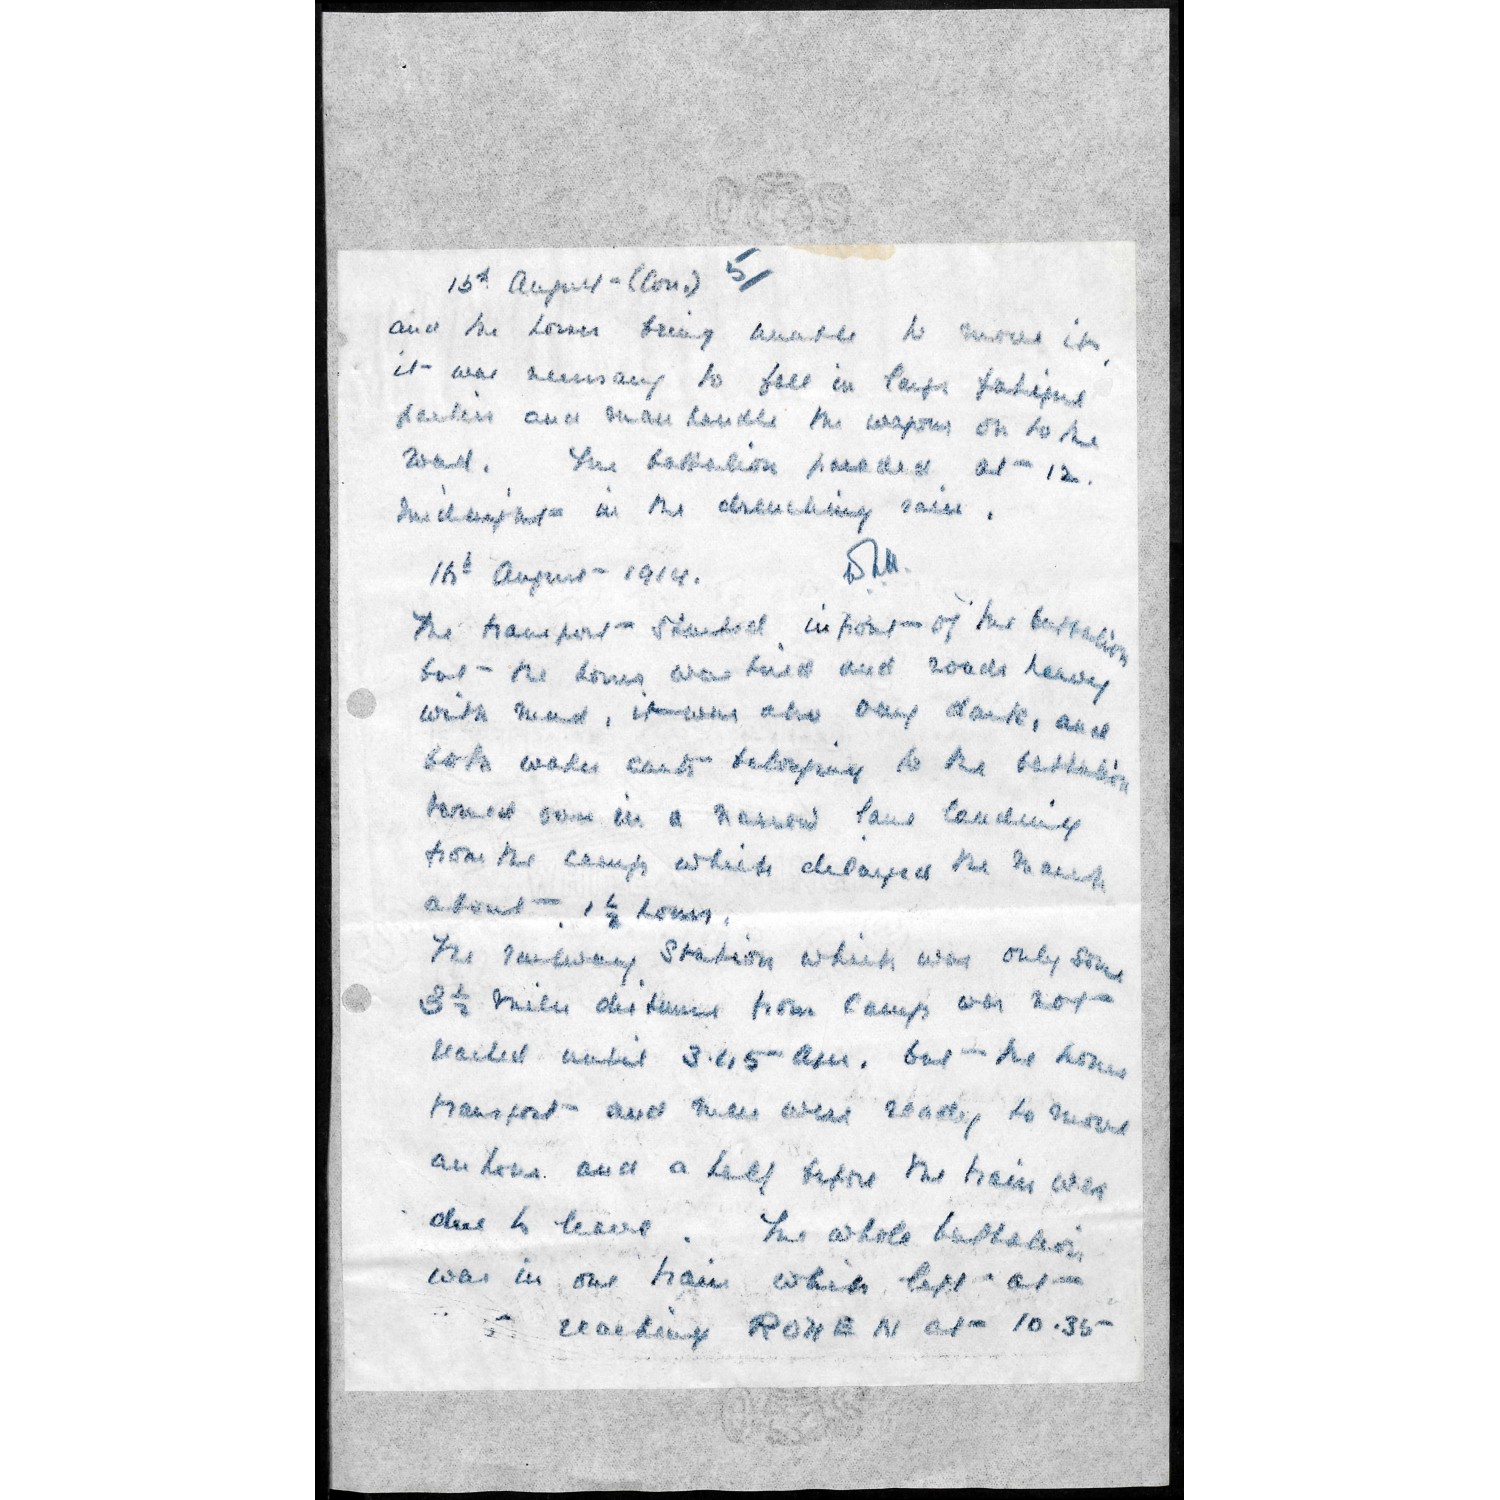 15th August - (Con.) 5/
and the horses being unable to move it,
it was necessary to fall in large fatigue
parties and man handle the wagons on to the
road. The battalion paraded at 12.
midnight in the drenching rain.
16th August - 1914.
The transport started in front of the battalion
but the horses were tired and roads heavy
with mud, it was also very dark, and
both water carts belonging to the battalion
turned over in a narrow lane leading
from the camp which delayed the march
about 1½ hours.
The railway station which was only some
3½ miles distance from camp was not
reached until 3.45 am. but the horses
transport and men were ready to move
an hour and a half before the train was
due to leave. The whole battalion
was in one train which left at
5 reaching ROUEN at 10.35